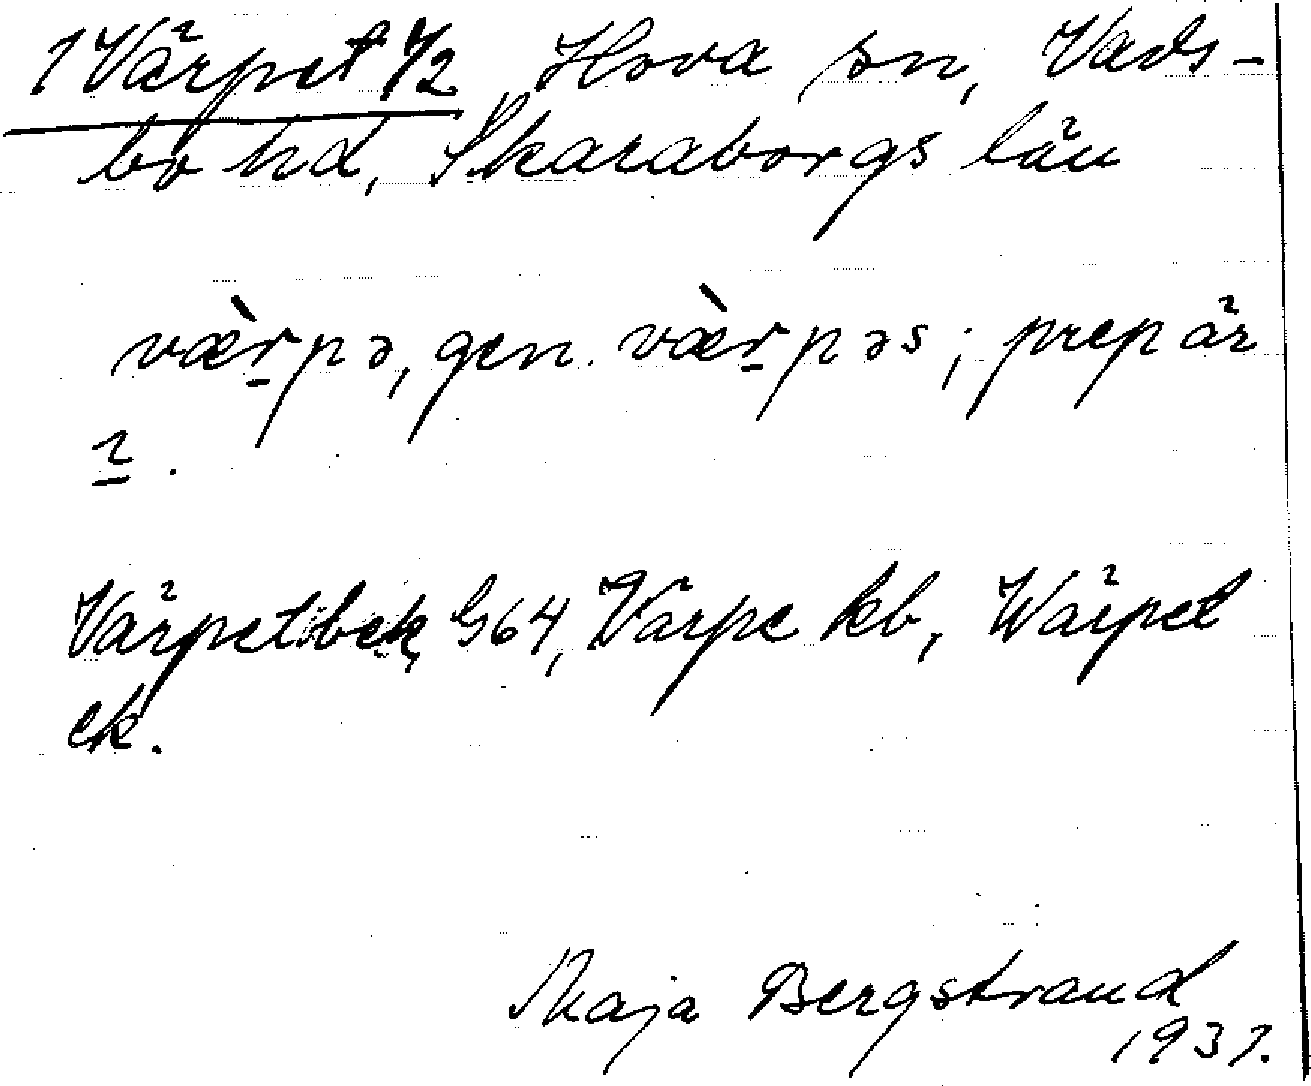 1 Värpet 1/2 Hova sn, Vads-
bo hd, Skaraborgs län
væ̀r̠pə, gen. væ̀r̠pəs; prep är
i̠.
Värpet bek, G64, Värpe kb, Wärpet
ek.
Maja Bergstrand
1937.